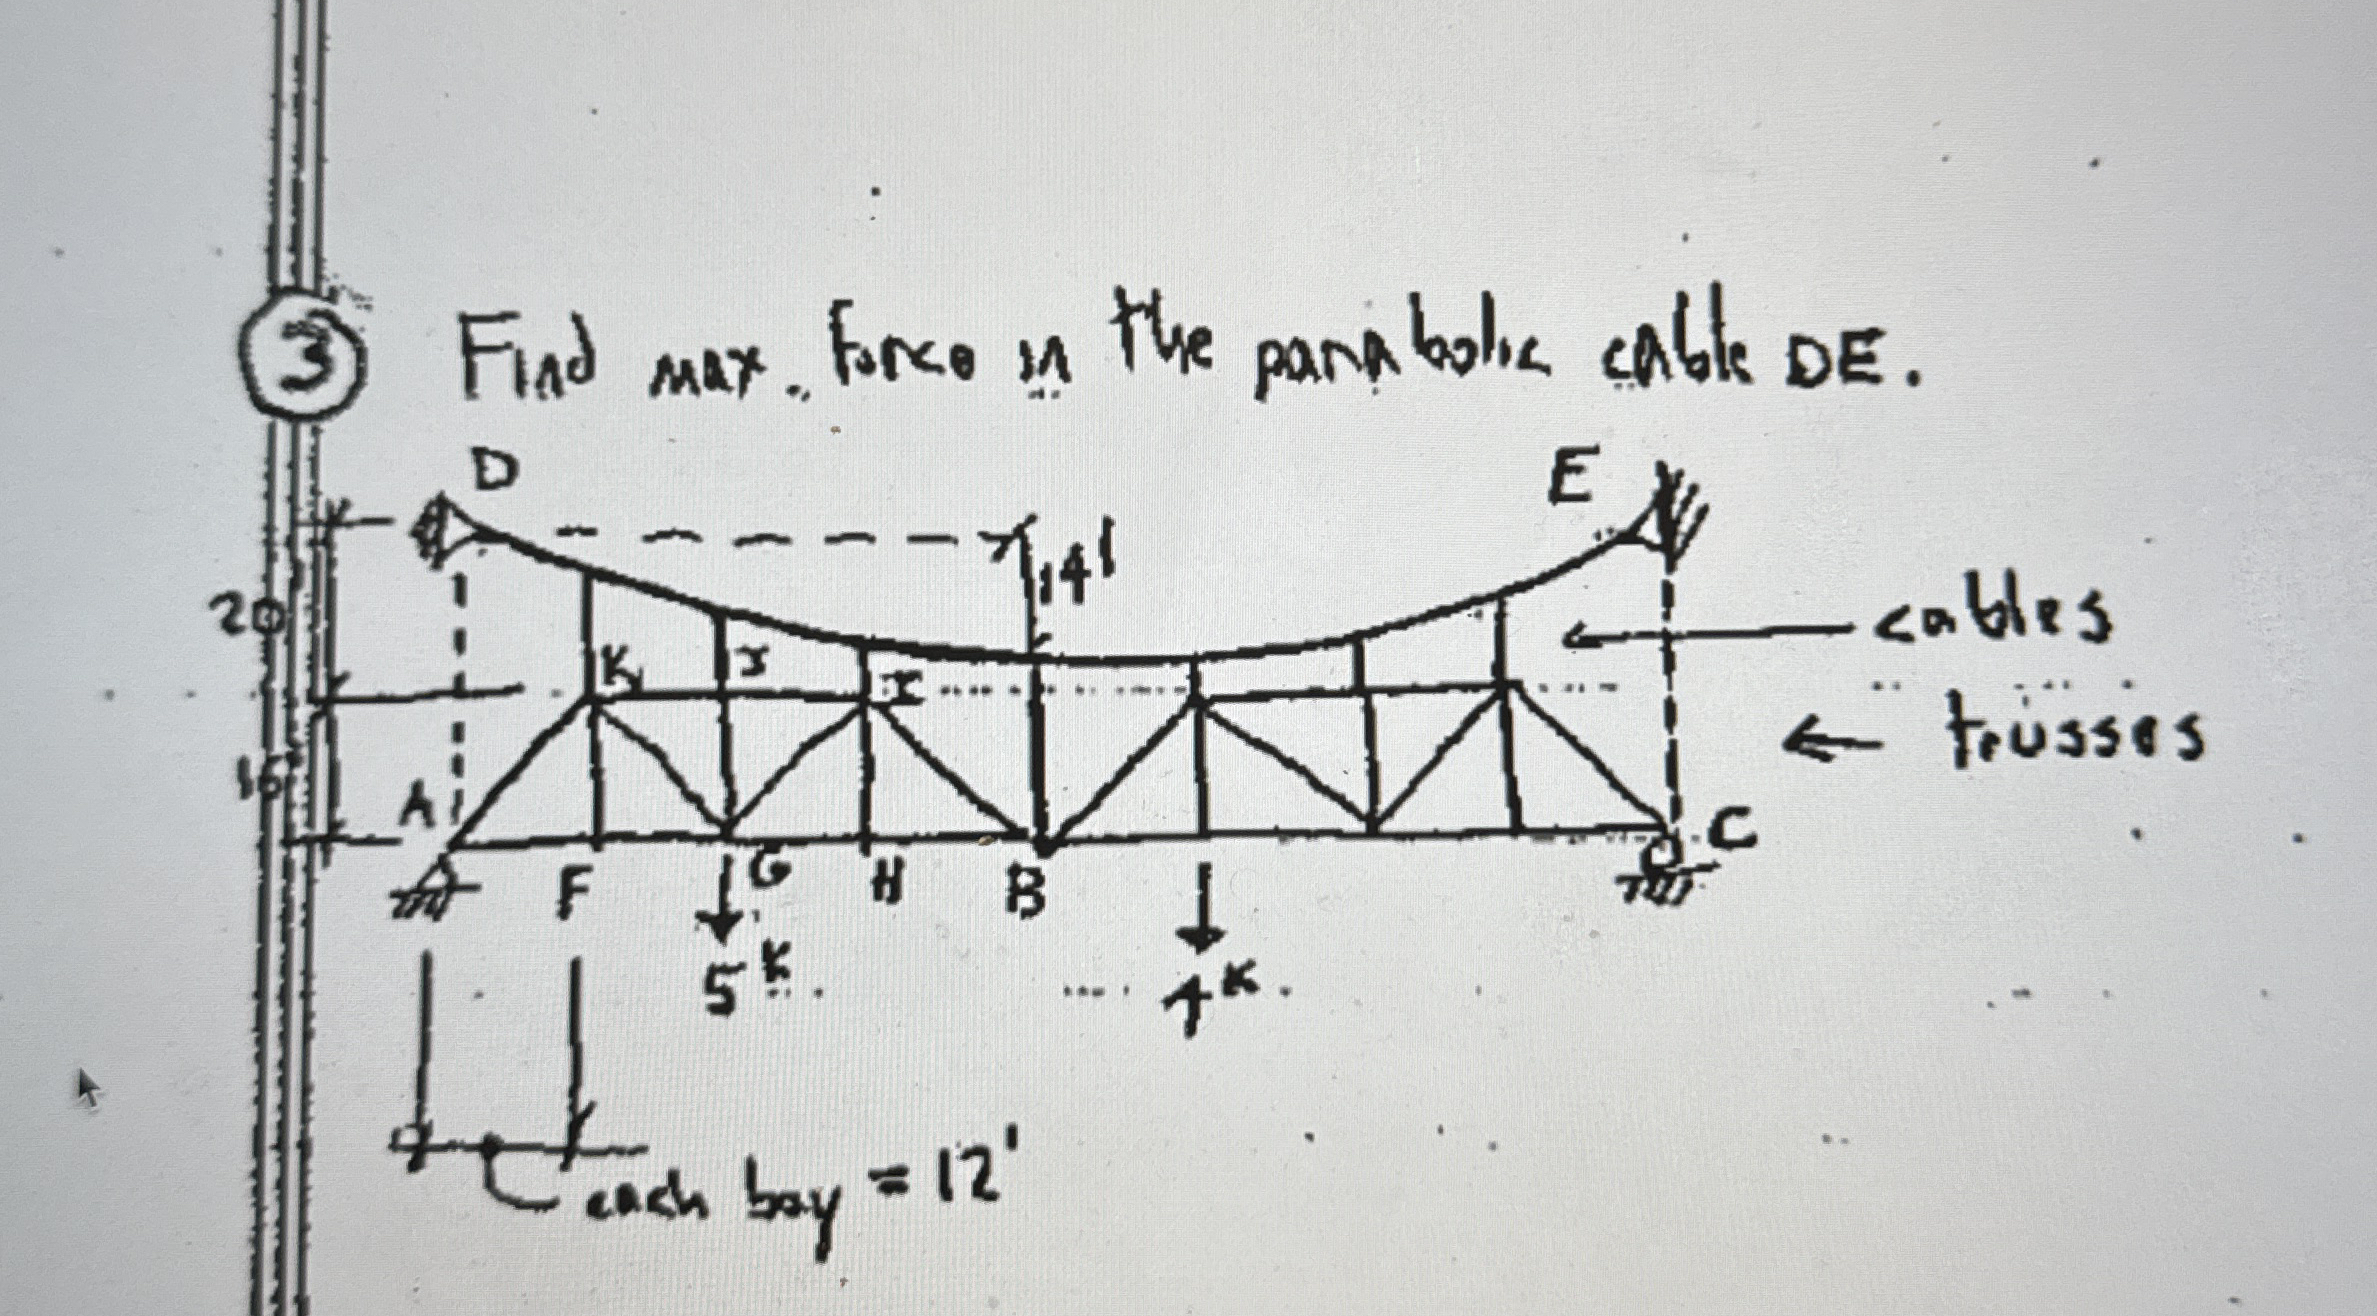 3 Find max. force in the parabolic cable DE.
D
E
14'
20
cables
K
J
I
trusses
16'
A
C
F
G
H
B
5K
4K
each bay = 12'